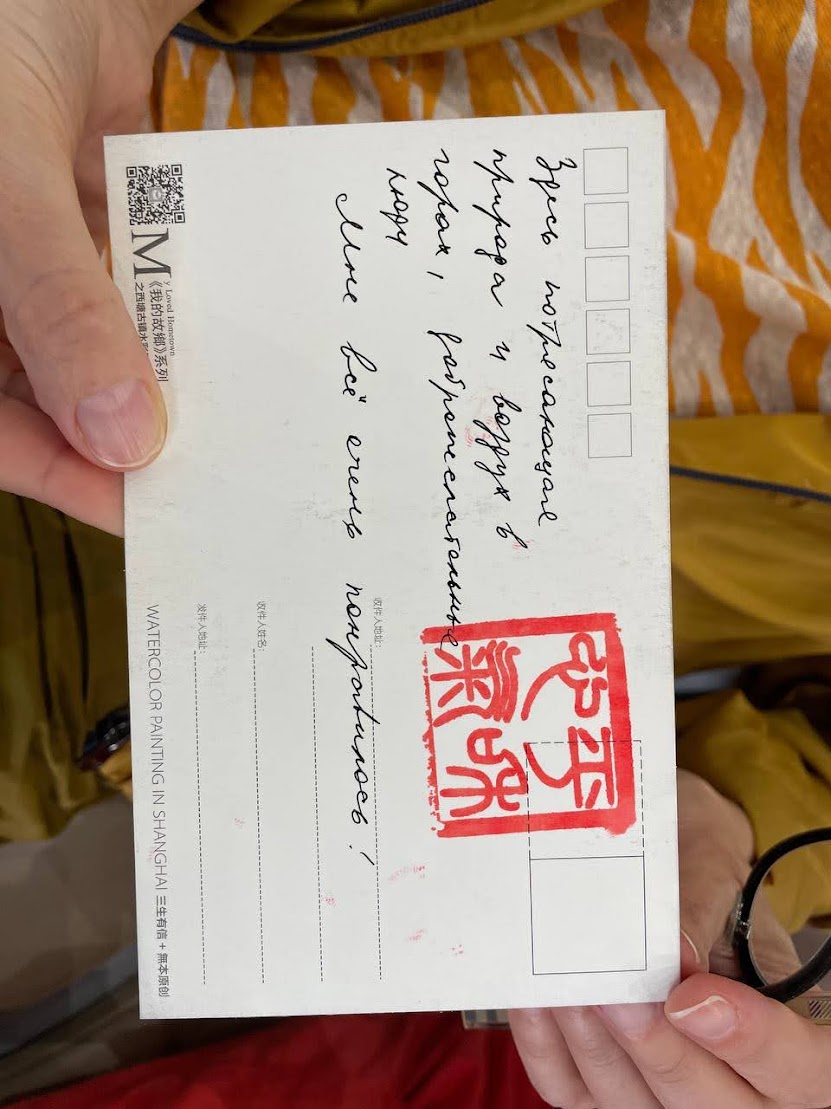 Здесь потрясающая
природа и воздух в
горах, доброжелательные
люди
Мне всё очень понравилось!
收件人地址:
收件人姓名:
发件人地址:
My Loved Hometown
《我的故鄉》系列
之西塘古镇水彩
WATERCOLOR PAINTING IN SHANGHAI 三生有信+無本原创